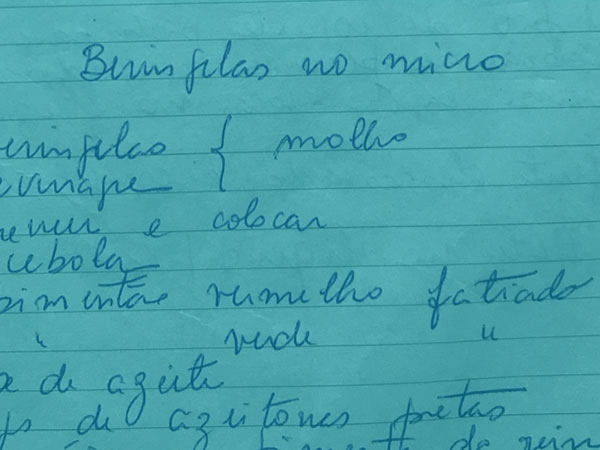 Berinjelas no micro
erinjelas { molho
evinagre
e colocar
cebola
pimentão vermelho fatiado
" verde "
de azeite
de azeitonas pretas